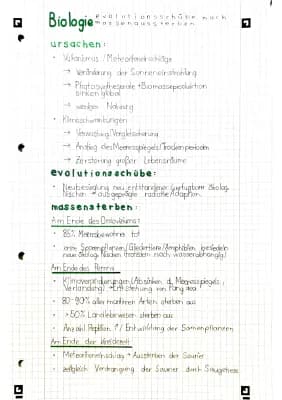 Biologie - evolutionsschübe nach
massenaussterben
ursachen:
· Vulkanismus / Meteoriteneinschläge
→ Veränderung der Sonneneinstrahlung
→ Photosyntheserate + Biomasseproduktion
sinken global
→ weniger Nahrung
· Klimaschwankungen
→ Vereisung / Vergletscherung
→ Anstieg des Meeresspiegels / Trockenperioden
→ Zerstörung großer Lebensräume
evolutionsschübe:
· Neubesiedlung neu entstandener / verfügbarer ökolog.
Nischen → ausgeprägte radiative Adaption
massensterben:
Am Ende des Ordoviziums:
· 85% Meeresbewohner tot
· erste Sporenpflanzen / Gliedertiere / Amphibien besiedeln
neue ökolog. Nischen (trotzdem noch wasserabhängig)
Am Ende des Perms:
· Klimaveränderungen (Absinken d. Meeresspiegels,
Verlandung) → Entstehung von Pangaea
· 80-90% aller marinen Arten sterben aus
· >50% Landlebewesen sterben aus
· Anzahl Reptilien ↑ / Entwicklung der Samenpflanzen
Am Ende der Kreidezeit
· Meteoriteneinschlag → Aussterben der Saurier
· zeitgleich Verdrängung der Saurier durch Säugetiere